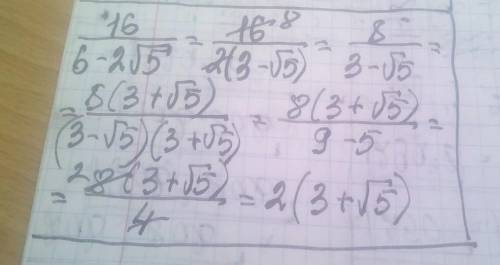 16/(6-2√5) = 16 8/(2(3-√5)) = 8/(3-√5) =
= 8(3+√5)/((3-√5)(3+√5)) = 8(3+√5)/(9-5) =
= 2 8(3+√5)/4 = 2(3+√5)